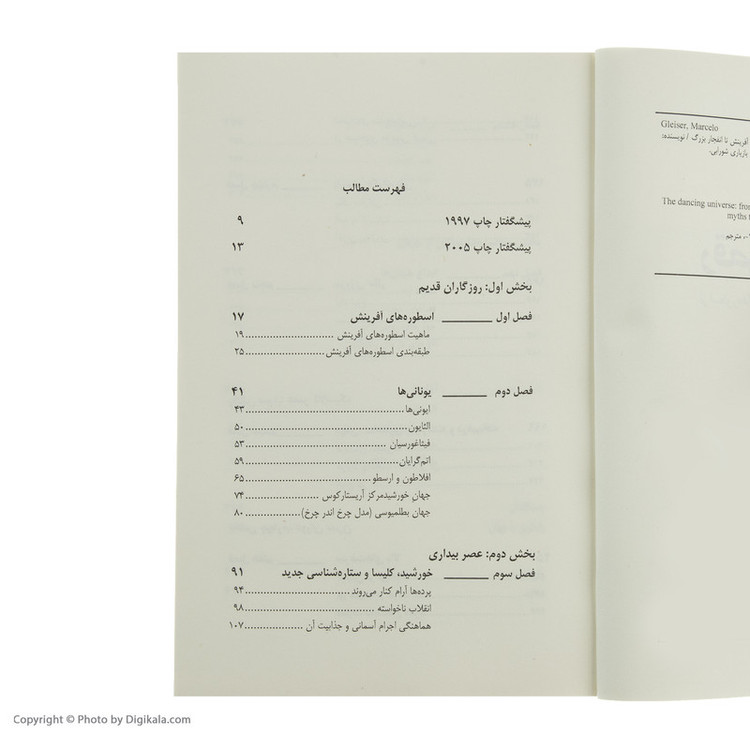 فهرست مطالب
پیشگفتار چاپ ۱۹۹۷ ۹
پیشگفتار چاپ ۲۰۰۵ ۱۳
بخش اول: روزگاران قدیم
فصل اول ________ اسطوره‌های آفرینش ۱۷
ماهیت اسطوره‌های آفرینش ........................ ۱۹
طبقه‌بندی اسطوره‌های آفرینش ........................ ۲۵
فصل دوم ________ یونانی‌ها ۴۱
ایونی‌ها ........................ ۴۳
الئایون ........................ ۵۰
فیثاغورسیان ........................ ۵۳
اتم‌گرایان ........................ ۵۹
افلاطون و ارسطو ........................ ۶۵
جهان خورشیدمرکز آریستارکوس ........................ ۷۴
جهان بطلمیوسی (مدل چرخ اندر چرخ) ........................ ۸۰
بخش دوم: عصر بیداری
فصل سوم ________ خورشید، کلیسا و ستاره‌شناسی جدید ۹۱
پرده‌ها آرام کنار می‌روند ........................ ۹۴
انقلاب ناخواسته ........................ ۹۸
هماهنگی اجرام آسمانی و جذابیت آن ........................ ۱۰۷
Gleiser, Marcelo
آفرینش تا انفجار بزرگ / نویسنده:
بازیاری شورابی.
The dancing universe: from
myths t
مترجم
Copyright © Photo by Digikala.com